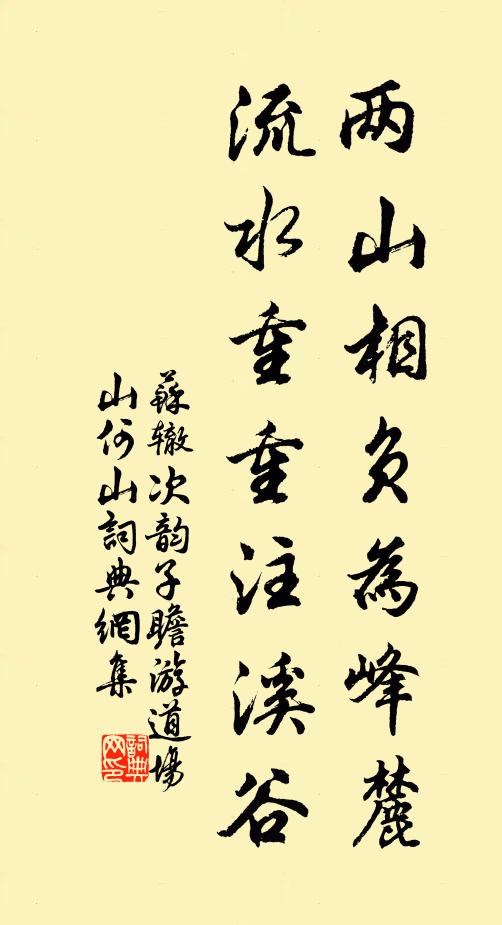 两山相负為峰麓
流水重重注溪谷
蘇辙次韵子瞻游道場
山何山詞典網集
詞典网印